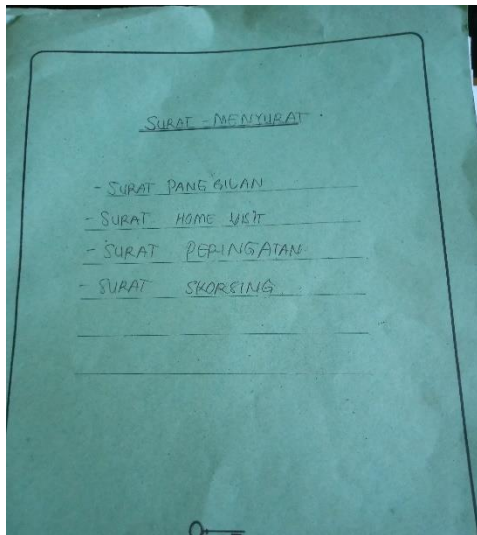 SURAT - MENYURAT
- SURAT PANGGILAN
- SURAT HOME VISIT
- SURAT PERINGATAN
- SURAT SKORSING